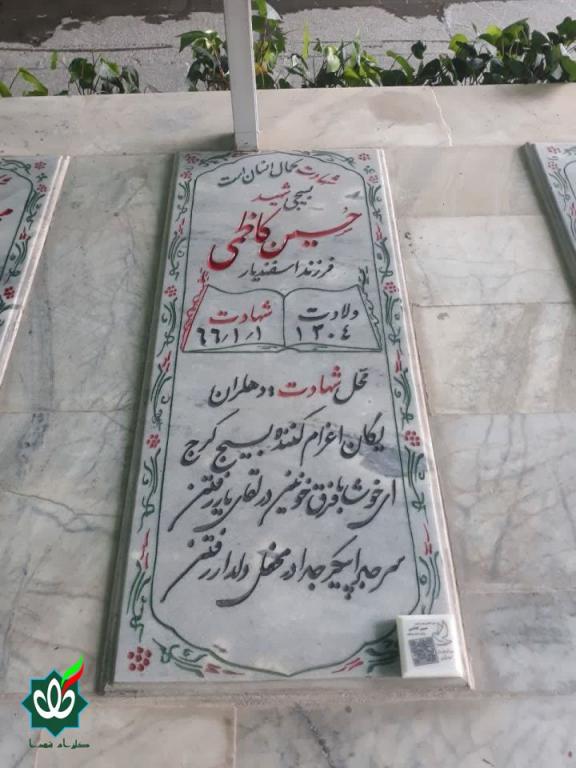 شهادت کمال انسان است
بسیجی شهید
حسین کاظمی
فرزند اسفندیار
ولادت
۱۳۰۴
شهادت
۶۶/۱/۱
محل شهادت : دهلران
یگان اعزام کننده بسیج کرج
ای خوشا با فرق خونین در لقای یار رفتن
سر جدا پیکر جدا در محفل دلدار رفتن
گلزار شهدا